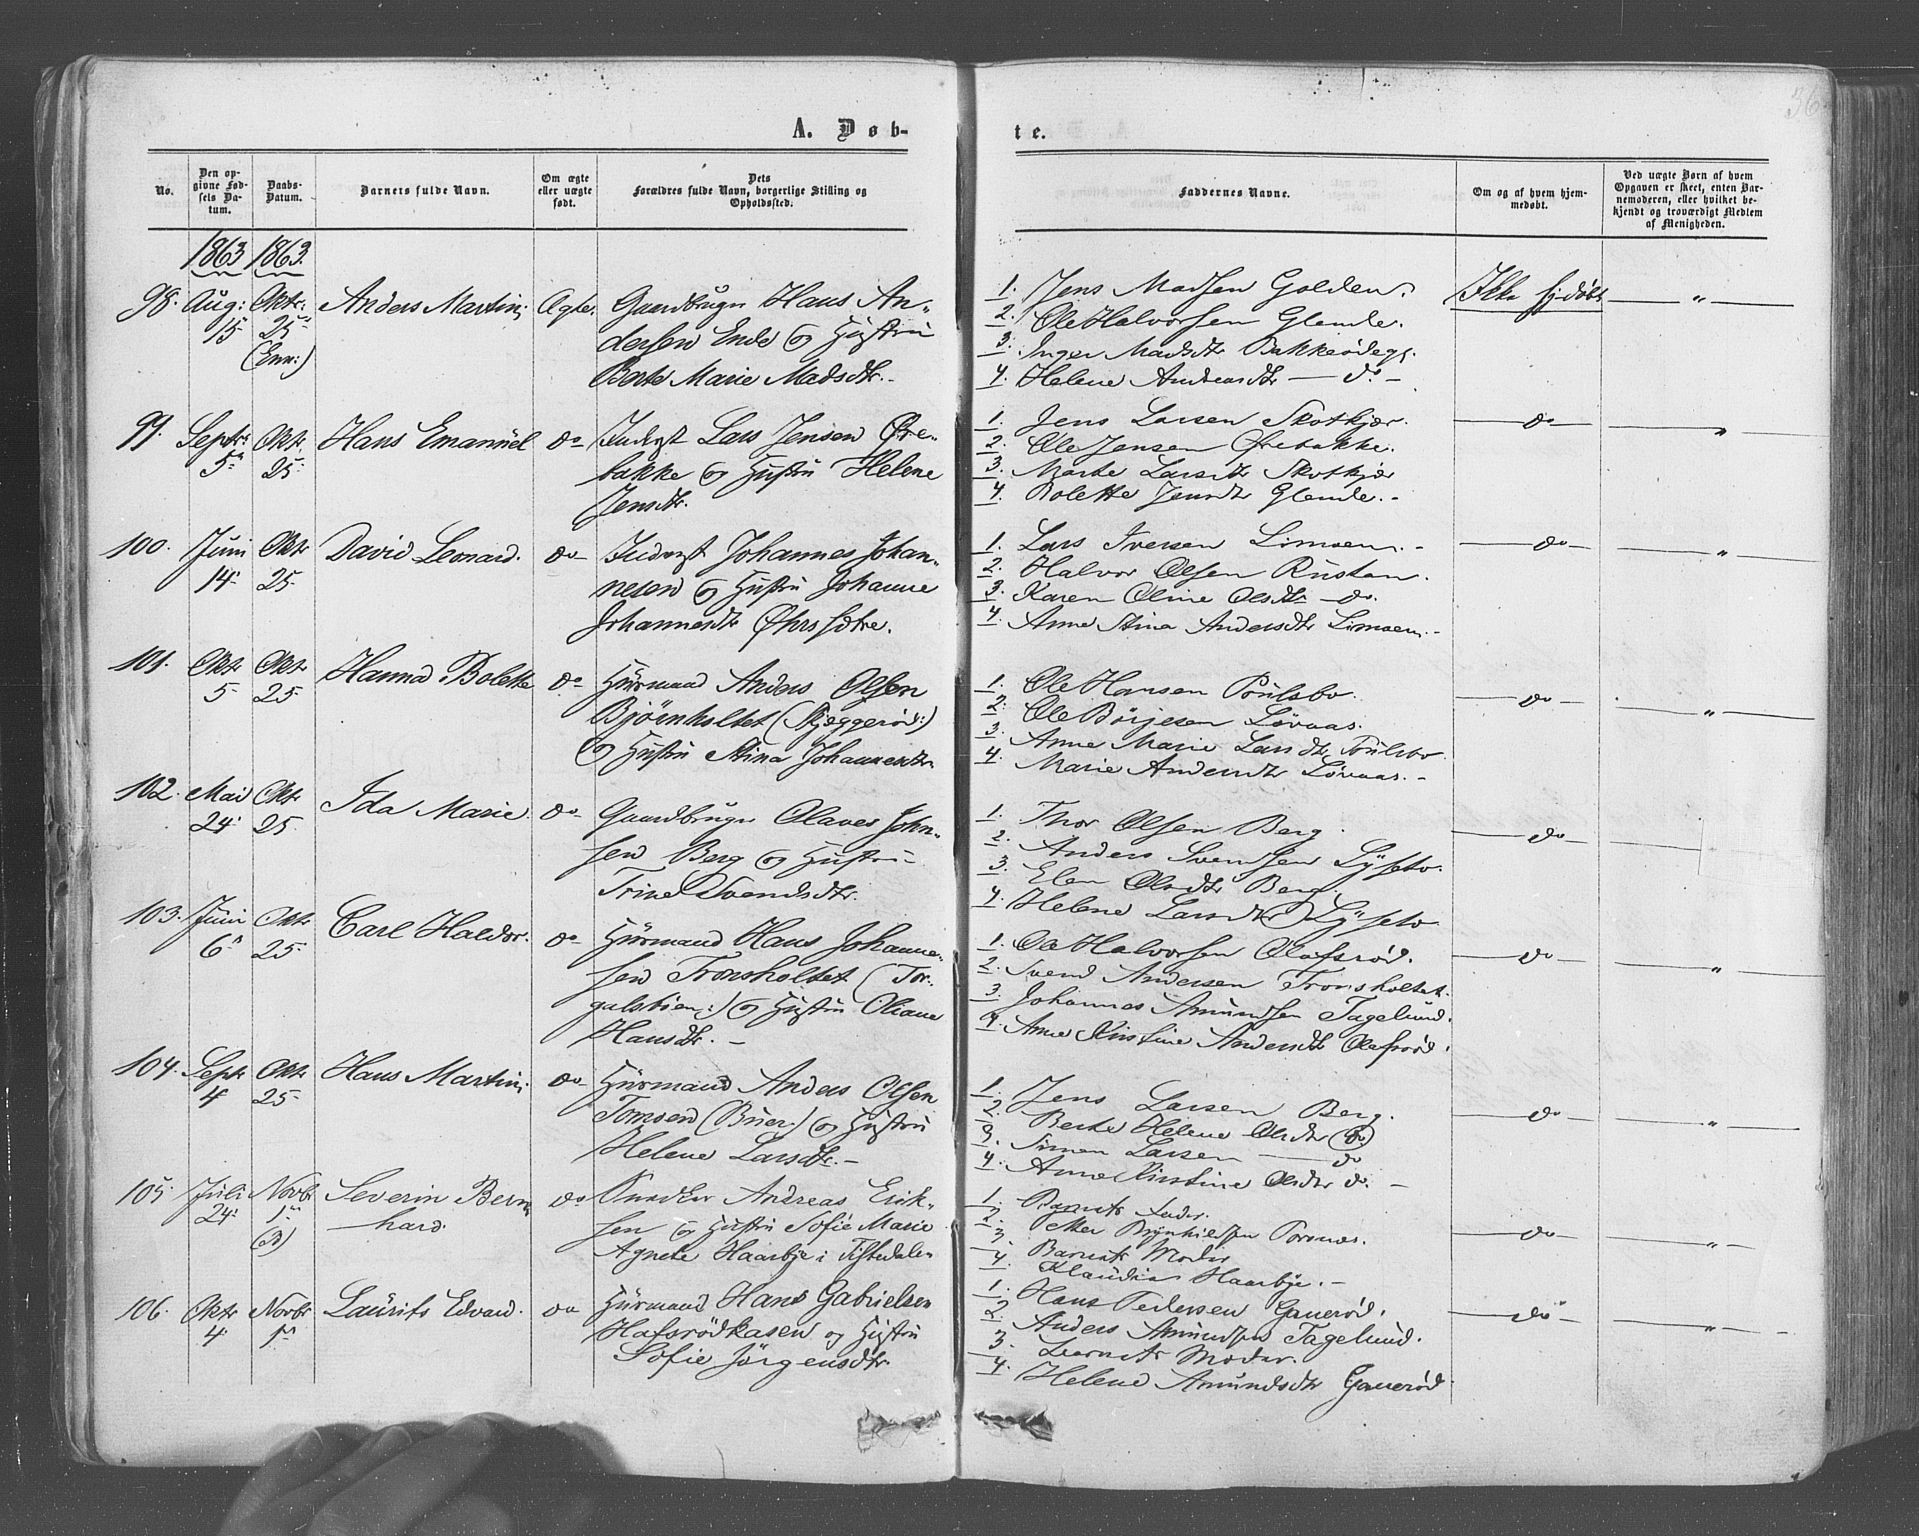 36
A. Døb-
te.
No.
Den op-
givne Fød-
sels Da-
tum.
Daabs-
Datum.
Barnets fulde Navn.
Om ægte
eller uægte
født.
Dets
Forældres fulde Navn, borgerlige Stilling og
Opholdssted.
Faddernes Navne.
Om og af hvem hjem-
medøbt.
Ved uægte Børn af hvem
Opgaven er skeet, enten Bar-
nemoderen, eller hvilket be-
kjendt og troværdigt Medlem
af Menigheden.
1863 1863.
98. Aug: 15 Oktr: 25 (Enn:) Anders Martin; Ægte.
Gaardbruger Hans An-
dersen Ende og Hustru
Berte Marie Madsdtr.-
1. Jens Madsen Golden.
2. Ole Halvorsen Glemle.
3. Inger Madsdtr Bakkeødegs.
4. Helene Andreasdtr — do -
Ikke hjdøbt — " —
99. Septr: 5 Oktr. 25 Hans Emanuel do
Inderst Lars Jensen Øre-
bakke og Hustru Helene
Jensdtr.
1. Jens Larsen Skotkjær.
2. Ole Jensen Ørebakke.
3. Marte Larsdtr Skotkjær
4. Bolette Jensdtr Glemle.-
— do — "
100. Juni 14 Oktr 25 David Leonard. do
Inderst Johannes Johan-
nesen og Hustru Johanne
Johannesdtr Øhrsætre.
1. Lars Iversen Limoen.-
2. Halvor Olsen Rustan.
3. Karen Oline Olsdtr — do.
4. Anne Stina Andersdtr Limoen.-
— do — "
101. Oktr 5 Oktr 25 Hanna Bolette do
Huusmand Anders Olsen
Bjørnholtet (Skjæggerød:)
og Hustru Stina Johannesdtr
1. Ole Hansen Poulsbo.
2. Ole Börjesen Løvaas.
3. Anne Marie Larsdtr Poulsbo
4. Marie Andersdtr Løvaas.-
— do — "
102. Mai 24 Oktr 25. Ida Marie do
Gaardbruger Olaves John-
sen Berg og Hustru
Trine Svendsdtr.
1. Thor Olsen Berg.
2. Anders Svendsen Lysebo.
3. Elen Olsdtr Berg.
4. Helene Larsdtr Lysebo
— do —
103. Juni 6 Oktr 25 Carl Haldor. do
Huusmand Hans Johanne-
sen Tronsholtet (Tor-
galsbøen:) og Hustru Oliane
Hansdtr. -
1. Ole Halvorsen Olafsrød.
2. Svend Andersen Tronsholtet.
3. Johannes Amundsen Tagelund.
4. Anne Kirstine Andersdtr Olafsrød.
— do — "
104. Septr 4 Oktr 25 Hans Martin; do
Huusmand Anders Olsen
Tomsen (Buer:) og Hustru
Helene Larsdtr. -
1. Jens Larsen Berg.
2. Berte Helene Olsdtr (do)
3. Simen Larsen — do
4. Anne Kirstine Olsdtr do. -
— do — "
105. Juli 24 Novbr 1 Severin Bern-
hard. do
Snedker Andreas Erik-
sen og Hustru Sofie Marie
Agnete Haarbye i Tistedalen
1. Barnets Fader.
2. Petter Brynhilsen Torsnæs.
3. Barnets Moder
4. Klaudia Haarbye. -
— do — "
106. Oktr 4 Novbr 1 Laurits Edvard. do
Huusmand Hans Gabrielsen
Hafsrødkasen og Hustru
Sofie Jørgensdtr.
1. Hans Pedersen Gauerød.
2. Anders Amundsen Tagelund.
3. Barnets Moder.
4. Helene Amundsdtr Gauerød
— do — "